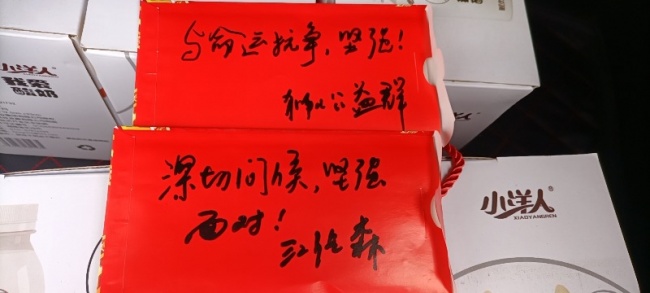 与命运抗争，坚强！
公益群
深切问候，坚强
面对！
森
小洋人
酸奶
小洋人
XIAOYANGREN